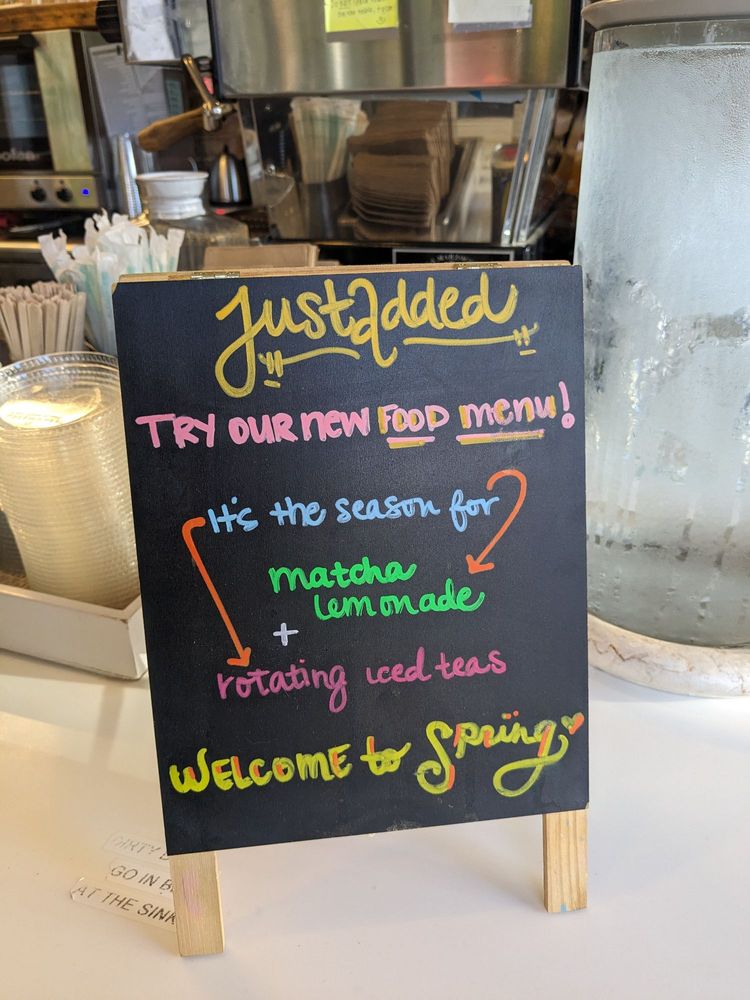 Just Added
TRY OUR new FOOD menu!
It's the season for
matcha
lemonade
+
rotating iced teas
WELCOME to Spring
GO IN
AT THE SINK